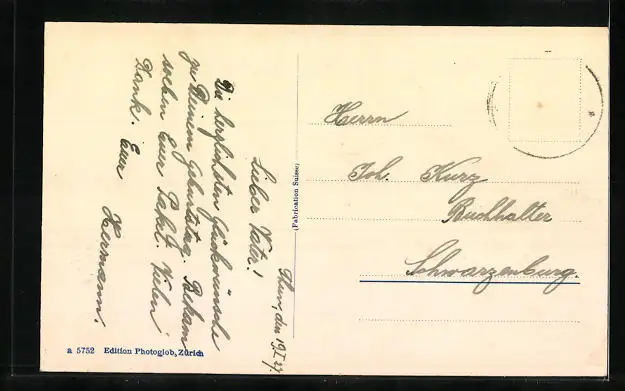 Thun, den 19.I.27.
Lieber Vater!
Die herzlichsten Glückwünsche
zu Deinem Geburtstag. Bekam
soeben Euer Paket. Vielen
Dank. Euer
Hermann.
(Fabrication Suisse)
Herrn
Joh. Kurz
Buchhalter
Schwarzenburg.
a 5752 Edition Photoglob, Zürich